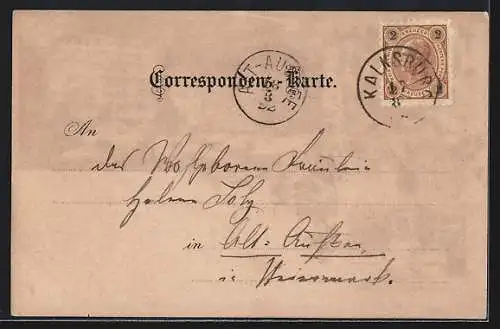 Correspondenz-Karte.
ALT-AUSSEE
8
92
KALKSBURG
8
2 2
An
das Wohlgeborene Fräulein
Helene
in Alt-Aussee
in Steiermark.